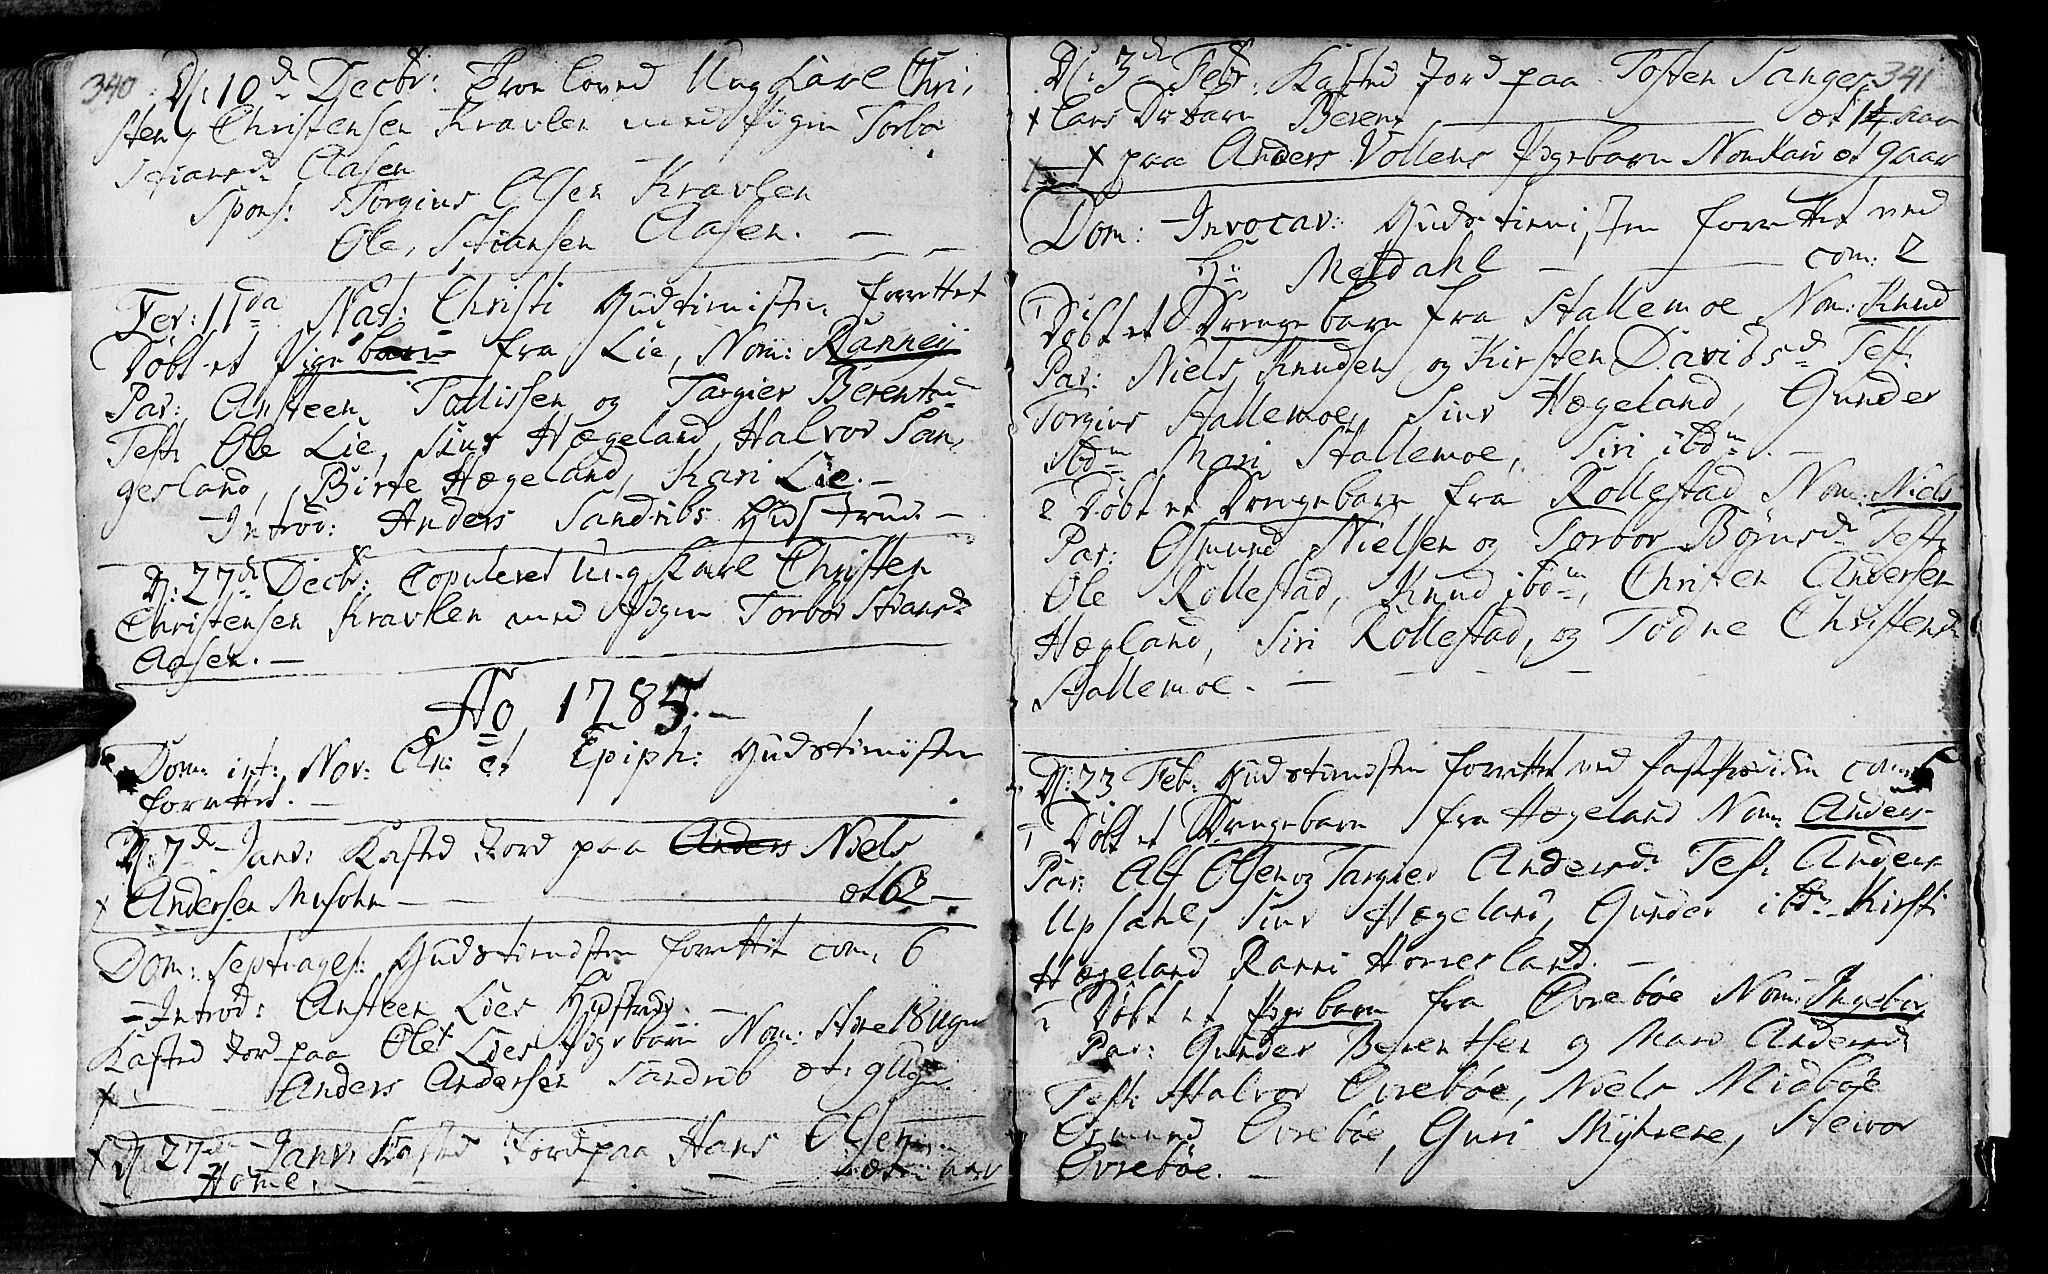 340
D: 10de Decbr: Troeloved Ung Karl Chri,
sten Christensen Kravlen med Pigen Torbor
Stiansd: Aasen
Spons: Torgius Olsen Kravlen
Ole Stiansen Aasen. —
Fer: 11da Nat: Christi Gudstienisten forrettet
Døbt et Pigebarn fra Lie, Nom: Ranneij
Par: Ansteen Tallissen og Targier Berentsd:
Test: Ole Lie, Siur Hægeland, Halvor San,
gesland, Birte Hægeland, Kari Lie. —
Introd: Anders Sandribs Hustrue —
D: 27de Decbr: Copuleret Ung Karl Christen
Christensen Kravlen med Pigen Torbor Stiansd:
Aasen. —
Ao 1785. —
Dom: int: Nov: An: et Epiph: Gudstienisten
forrettet. —
D: 7de Janv: Kasted Jord paa Anders Niels
x Andersen Musohn — æt 62 —
Dom: Septuages: Gudstienisten forrettet com: 6
– Introd: Ansteen Lies Hustrue. —
Kasted Jord paa Ole Lies Pigebarn Nom: 18 Uger
x Anders Andersen Sandrib æt: 9 Uger
x D: 27de Janv: Kasted Jord paa Hans Olsen
Home. —
341
D: 3de Febr: Kasted Jord paa Tosten Sanges,
x lans Drbarn Berent — æt 1¼ aar
x paa Anders Vollens Pigebarn Nom Kari æt 9 aar
Dom: Invocav: Gudstienisten forrettet ved
Hr: Meldahl — com: 2
1 Døbt et Drengebarn fra Stallemoe Nom: Knud
Par: Niels Knudsen og Kirsten Davidsd: Test:
Torgius Stallemoe, Siur Hægeland, Gunder
ibdm Mari Stallemoe, Siri ibdm. —
2 Døbt et Drengebarn fra Rollestad Nom: Niels
Par: Osmund Nielsen og Torbor Børuesd: Test:
Ole Rollestad, Knud ibdm, Christen Andersen
Hægland, Siri Rollestad, og Todne Christensd:
Stallemoe. —
D: 23 Febr: Gudstienisten forrettet ved com:
1 Døbt et Drengebarn fra Hægeland Nom: Anders
Par: Alf Olsen og Targier Andersd: Test: Anders
Upsahl, Siur Hægeland, Gunder ibdm Kirsti
Hægeland Ranni Homesland. —
2 Døbt et Pigebarn fra Øvrebøe Nom: Ingebor
Par: Gunder Berentsen og Mari Andersd:
Test: Halvor Øvrebøe, Niels Midbøe
Osmund Øvrebøe, Guri Myhrene, Steivor
Øvrebøe. —